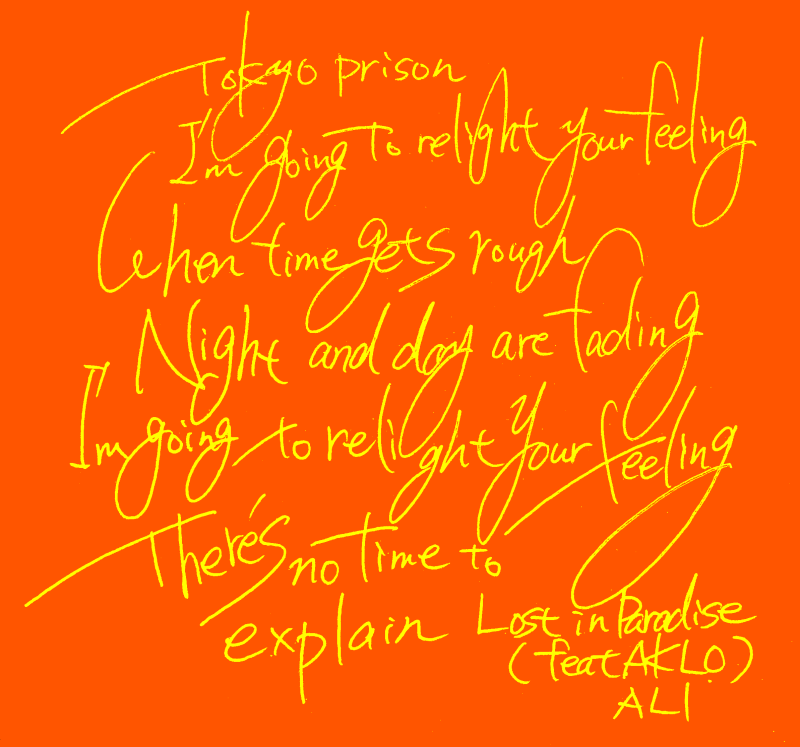 Tokyo prison
I'm going to relight your feeling
When time gets rough
Night and day are fading
I'm going to relight your feeling
There's no time to
explain
Lost in Paradise
(feat AKLO)
ALI